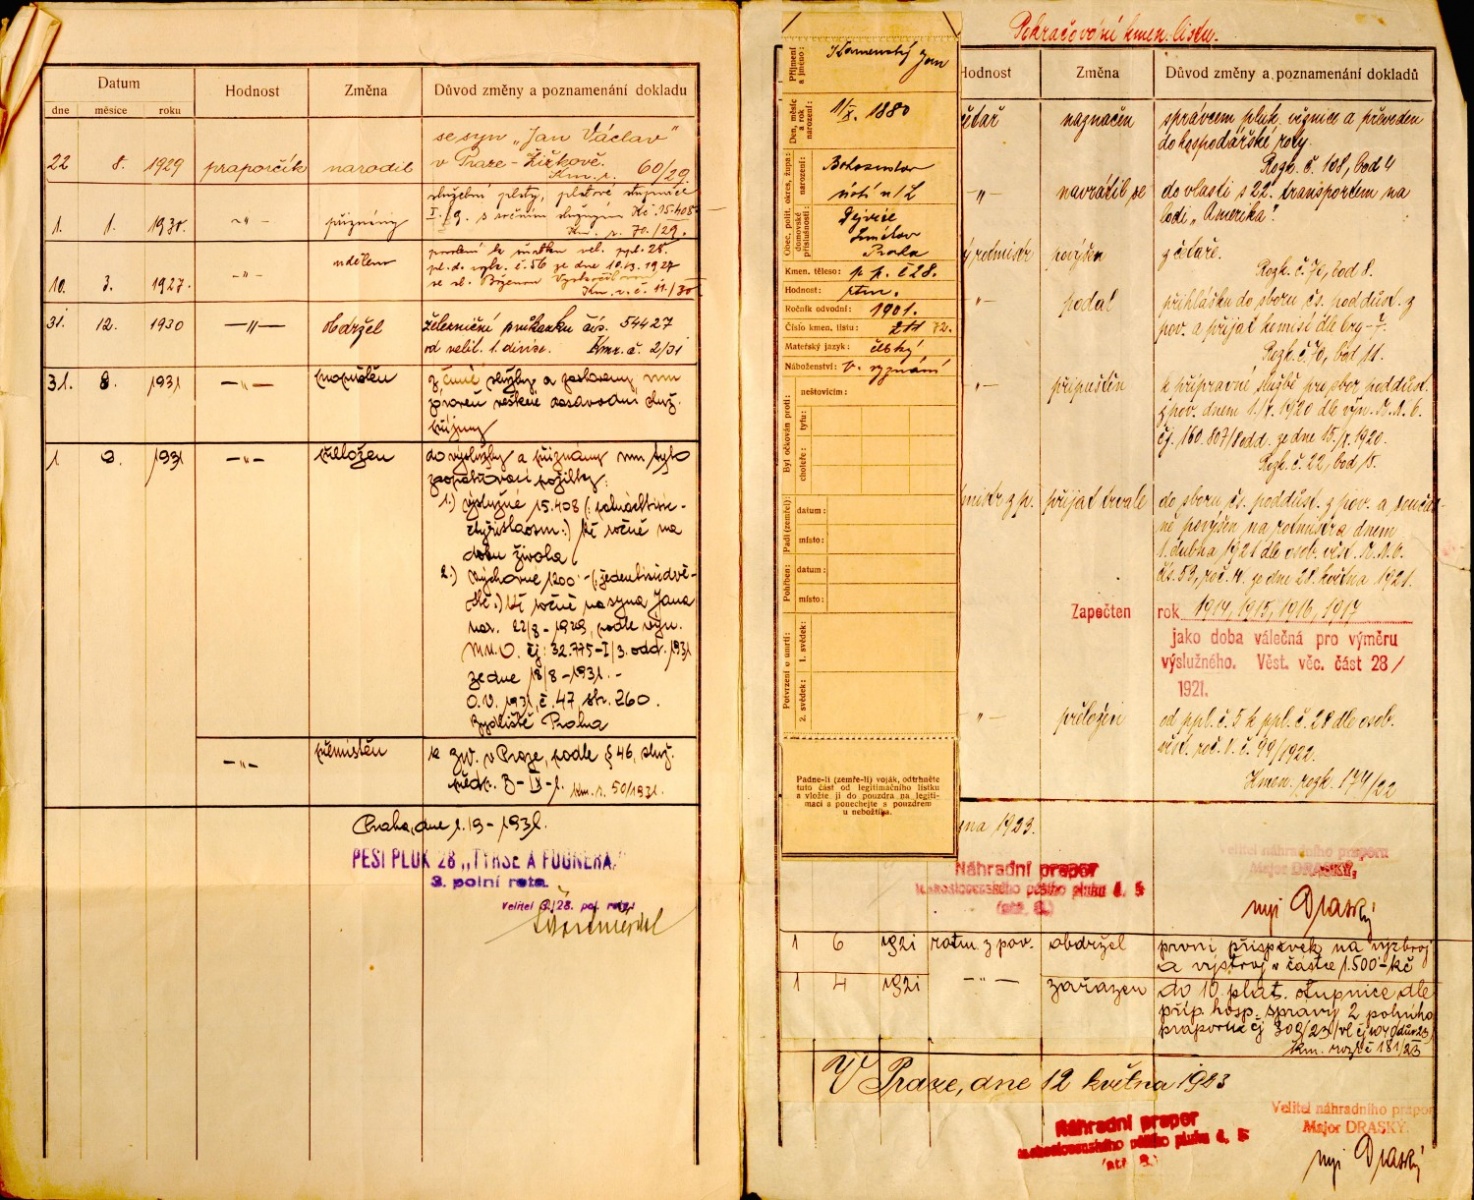 Datum
Hodnost
Změna
Důvod změny a poznamenání dokladu
dne měsíce roku
se syn „Jan Václav"
v Praze-Žižkově.
22 8. 1929 praporčík narodil
60/29.
služební platy, platové stupnice
1. 1. 1930. -"- přiznány
10. 3. 1927. -"- udělena
31. 12. 1930 -"- obdržel železniční průkazku čís. 54427
od velit. 1. divise. Kmr. č. 2/31
31. 8. 1931 -"- propuštěn z činné služby a zastaveny mu
zároveň veškeré dosavadní služ.
příjmy
1 9. 1931 -"- přeložen do výslužby a přiznány mu tyto
zaopatřovací požitky:
1.) výslužné 15.408
čtyřistaosm.) Kč ročně na
dobu života
2.) Výchovné 1200
Kč ročně na syna Jana
nar. 22/8-1929, podle výn.
M.N.O. čj. 32.775-I/3. odd. 1931
ze dne 18/8-1931.-
O.V. 1931, č. 47 str. 260.
Bydliště Praha
-"- přemístěn k zvv. v Praze, podle § 46, služ.
předp. B-IX-1. km. r. 50/1931.
Praha, dne 1. 9-1931.
PĚŠÍ PLUK 28 „TYRŠE A FÜGNERA"
3. polní rota.
Velitel 3/28. pol. roty:
Pokračování kmen. listu.
Příjmení a jméno: Kamenský Jan
Den, měsíc a rok narození: 1/X. 1880
Obec, polit. okres, župa:
narození: Bohosudov
Ústí n/L
domovské příslušnosti: Dejvice
Smíchov
Praha
Kmen. těleso: p. p. č 28.
Hodnost: rtm.
Ročník odvodní: 1901.
Číslo kmen. listu: 211
Mateřský jazyk: český
Náboženství: b. vyznání
Byl očkován proti:
neštovicím:
tyfu:
choleře:
Padl (zemřel):
datum:
místo:
Pohřben:
datum:
místo:
Potvrzení o úmrtí:
1. svědek:
2. svědek:
Padne-li (zemře-li) voják, odtrhněte
tuto část od legitimačního lístku
a vložte ji do pouzdra na legiti-
maci a ponechejte s pouzdrem
u nebožtíka.
Hodnost
Změna
Důvod změny a poznamenání dokladů
četař naznačen správcem pluk. věznice a převeden
do hospodářské roty.
Rozk. č. 108, bod 4
-"- navrátil se do vlasti s 22. transportem na
lodi „Amerika".
povýšen z četaře.
Rozk. č. 70, bod 8.
-"- podal přihlášku do sboru čs. poddůst. z
pov. a přijat komisí dle
Rozk. č. 70, bod 11.
-"- připuštěn k přípravné službě pro sbor poddůst.
z pov. dnem 1./V. 1920 dle výn. M.N.O.
čj. 160.807/8 odd. ze dne 15./V. 1920.
Rozk. č. 22, bod 15.
přijat trvale do sboru čs. poddůst. z pov. a součas-
ně povýšen na rotmistra dnem
1. dubna 1921 dle osob. věst. M.N.O.
čís. 53, roč. 4. ze dne 28. května 1921.
Započten rok 1914, 1915, 1916, 1917
jako doba válečná pro výměru
výslužného. Věst. věc. část 28/
1921.
-"- přeložen od ppl. č. 5 k ppl. č. 28 dle osob.
věst. roč. V. č. 49/1922.
Kmen. rozk. 174/22
1923.
Náhradní prapor
československého pěšího pluku č. 5
Velitel náhradního praporu
Major DRASKÝ.
mjr Draský
1 6 1921 rotm z pov. obdržel první příspěvek na výzbroj
a výstroj v částce 1.500-Kč
1 4 1921 -"- zařazen do 10 plat. stupnice dle
příp. hosp. správy 2 polního
praporu čj 302/23
km. rozk č 181/23
V Praze, dne 12 května 1923
Náhradní prapor
československého pěšího pluku č. 5
Velitel náhradního praporu
Major DRASKÝ.
mjr Draský